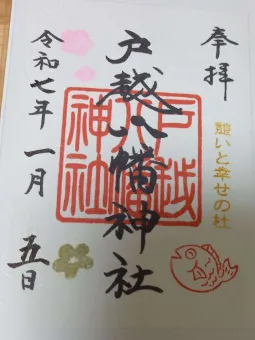 奉拝
憩いと幸せの社
戸越八幡神社
戸越八幡神社
令和七年一月五日